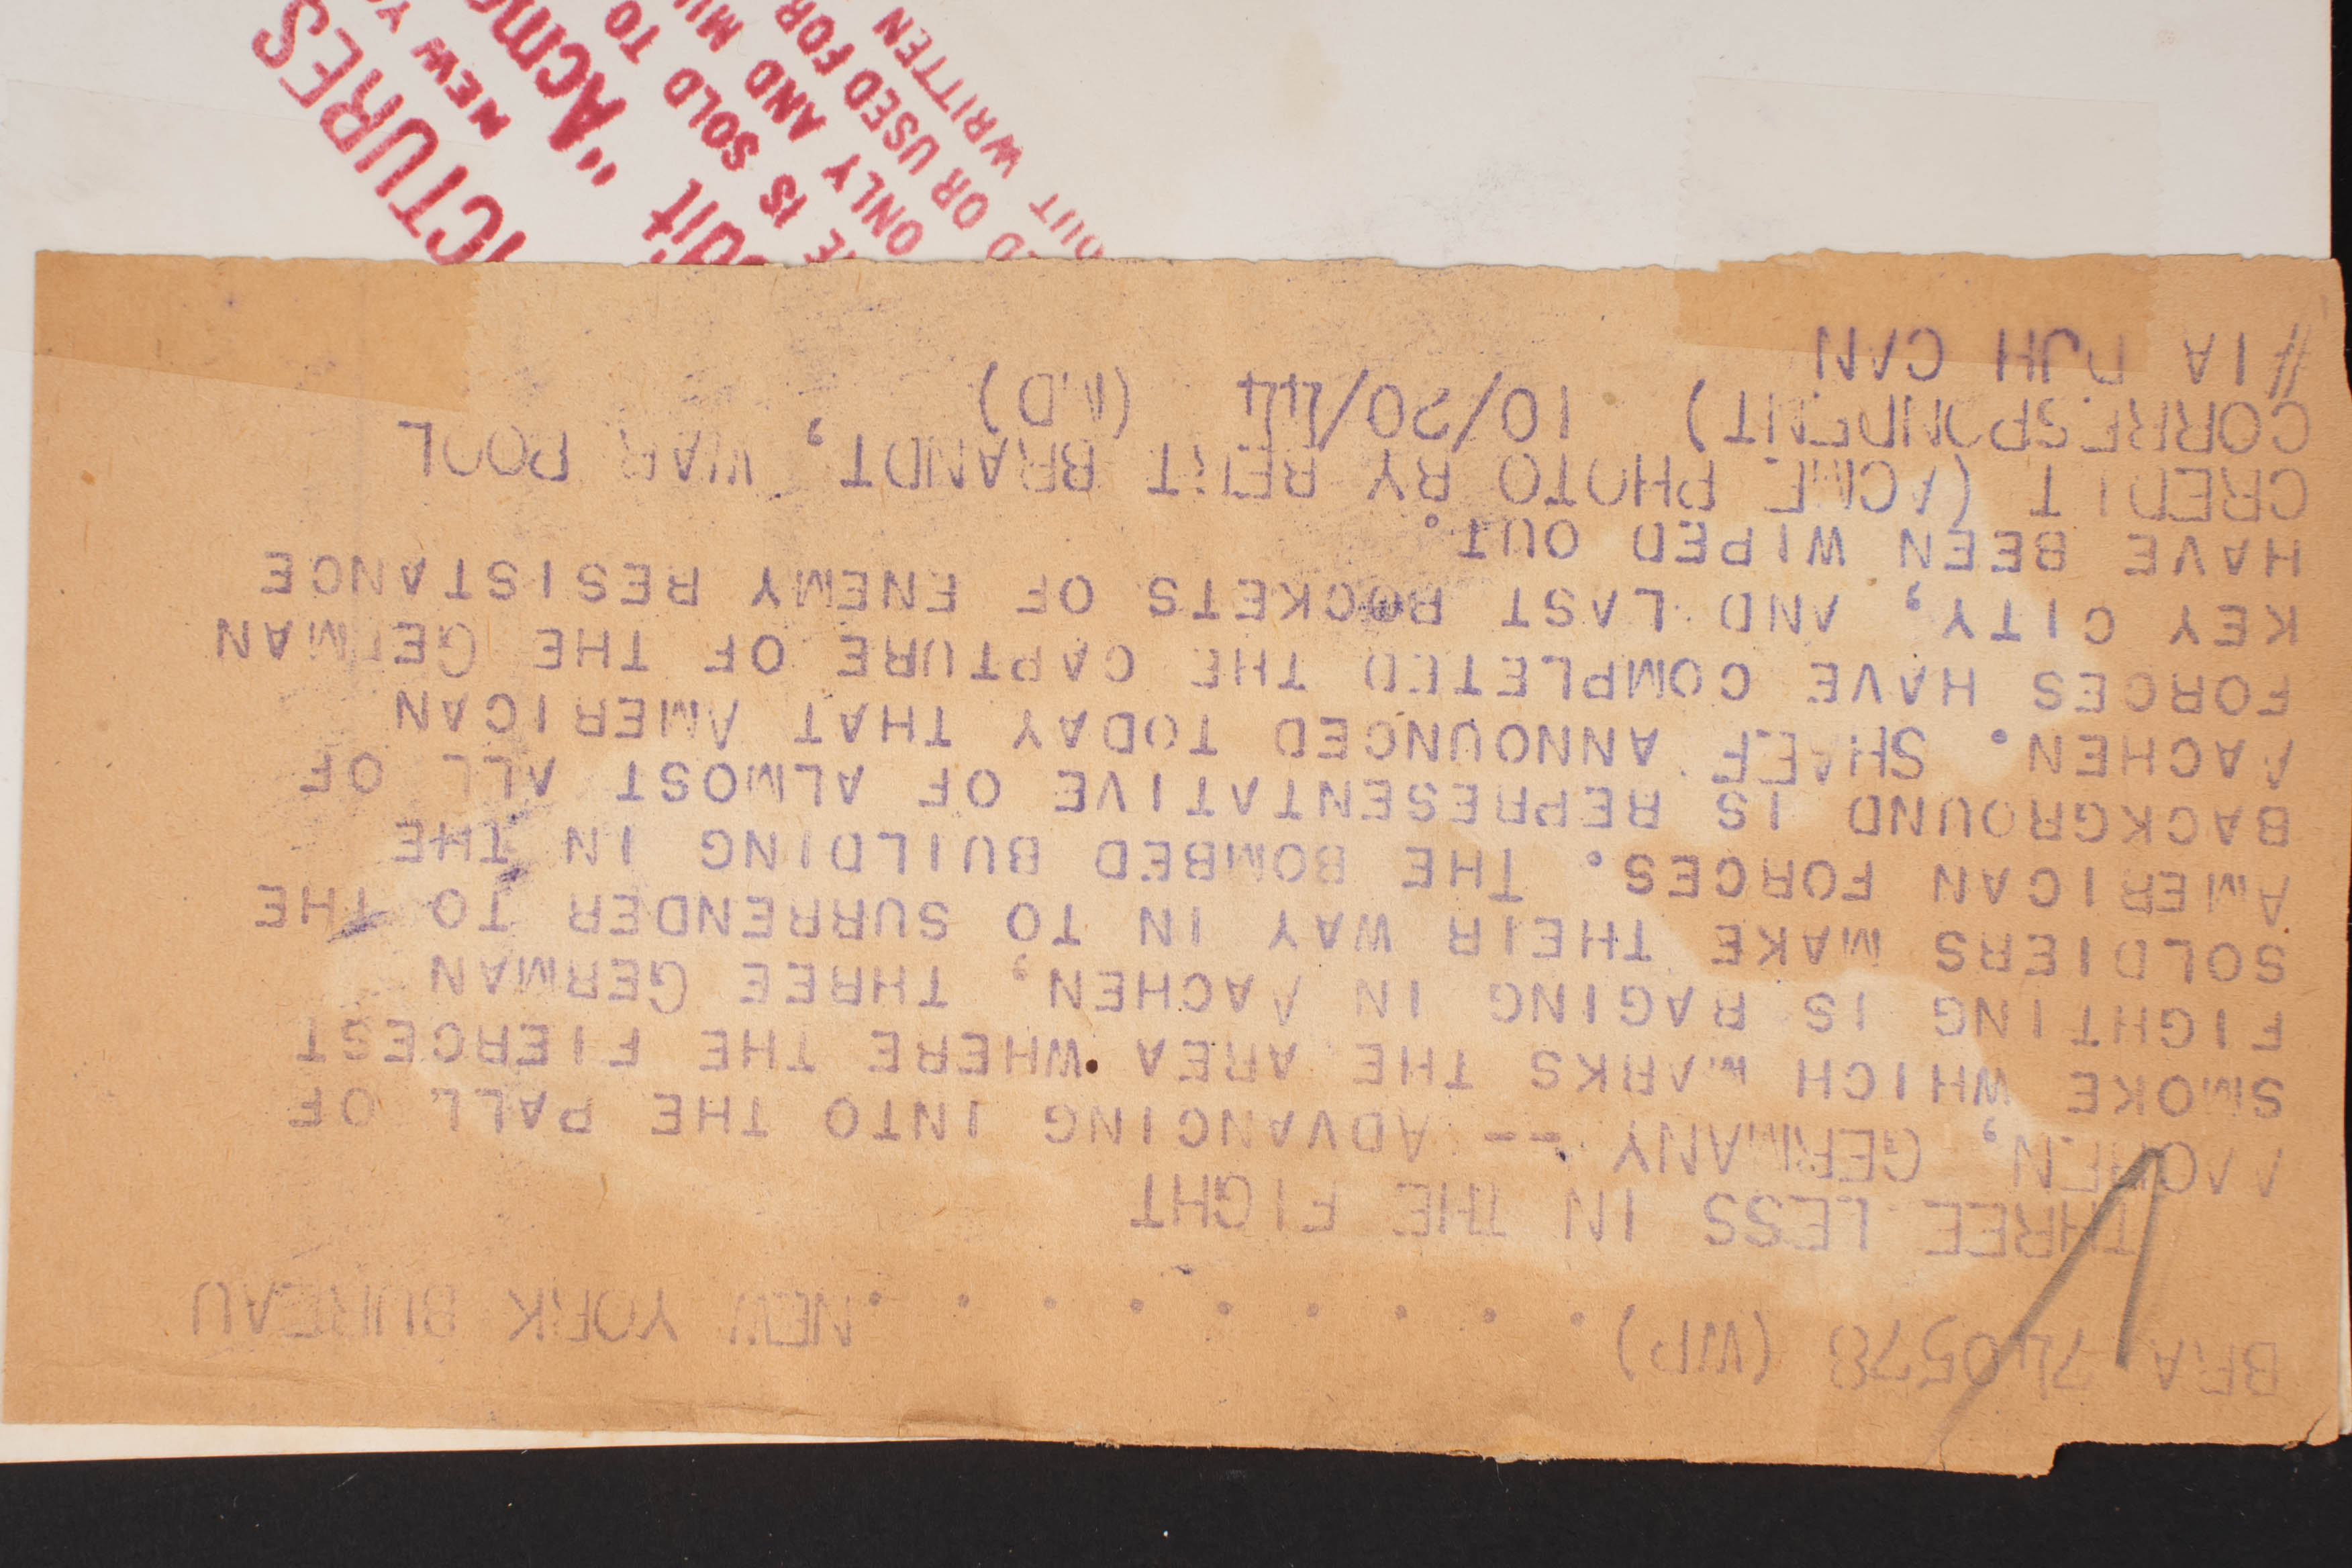 BRA 740578 (WP) . . . . . . . . . .NEW YORK BUREAU
THREE LESS IN THE FIGHT
AACHEN, GERMANY -- ADVANCING INTO THE PALL OF
SMOKE WHICH MARKS THE AREA WHERE THE FIERCEST
FIGHTING IS RAGING IN AACHEN, THREE GERMAN
SOLDIERS MAKE THEIR WAY IN TO SURRENDER TO THE
AMERICAN FORCES. THE BOMBED BUILDING IN THE
BACKGROUND IS REPRESENTATIVE OF ALMOST ALL OF
AACHEN. SHAEF ANNOUNCED TODAY THAT AMERICAN
FORCES HAVE COMPLETED THE CAPTURE OF THE GERMAN
KEY CITY, AND LAST POCKETS OF ENEMY RESISTANCE
HAVE BEEN WIPED OUT.
CREDIT (ACME PHOTO BY BERT BRANDT, WAR POOL
CORRESPONDENT) 10/20/44 (AD)
#1A DJH CAN
ICTURES
NEW Y
dit "Acm
E IS SOLD TO
ONLY AND MU
ED OR USED FOR
OUT WRITTEN